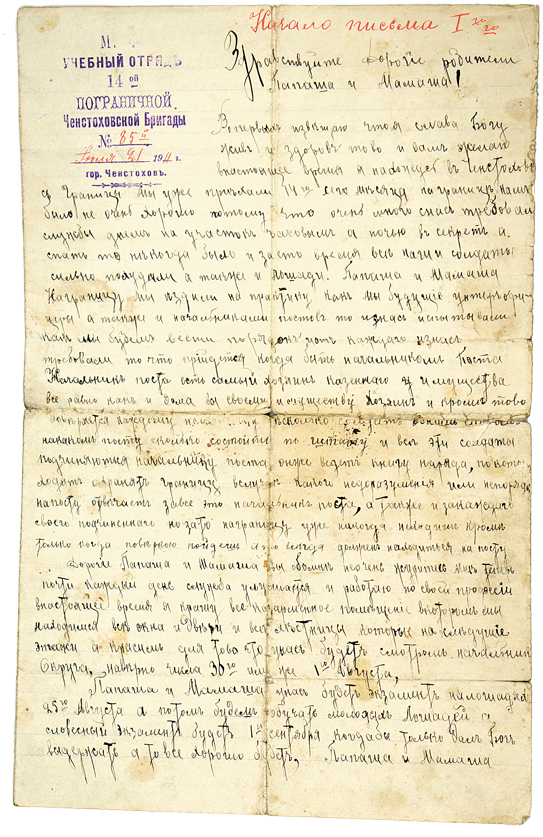 Начало письма I го
М. Ф.
УЧЕБНЫЙ ОТРЯДЪ
14 ой
ПОГРАНИЧНОЙ
Ченстоховской Бригады
№ 85 й
Июля 21 1911 г.
гор. Ченстоховъ.
Здравствуйте дорогіе родители
Папаша и Мамаша!
Вопервыхъ извещаю что я слава Богу
живъ и здоровъ того и вамъ желаю
внастоящее время я нахожусь въ Ченстохове
съ Границы мы уже приехали 14го сего месяца на границе намъ
было не очень хорошо потому что очень много снасъ требовали
службы днемъ на участокъ часовымъ а ночью въ секретъ а
спать то некогда было и за ето время все наши солдаты
сильно похудали а также и лошади. Папаша и Мамаша
Награницу мы ездили на практику какъ мы будущие унтерофи-
церы а также и начальниками постовъ то изнасъ испытывали
какъ мы будемъ вести порядокъ каждаго изнасъ
требовали то что придется когда быть начальникомъ Поста
Начальникъ поста есть самый хозяинъ казеннаго имущества
все равно какъ и дома вы своему имуществу хозяинъ и кроме того
накакомъ посту сколько состоитъ по штату и все эти солдаты
подчиняются начальнику поста онже ведетъ книгу наряда, по кото-
охранять границу вслучае какого недоразумения или непорядка
напосту отвечаетъ завсе это начальникъ поста, а также и закаждаго
своего подчиненнаго но зато награницу уже никогда неходишь кроме
только когда поверкою пойдешь а то всегда долженъ находиться на посту
Дорогіе Папаша и Мамаша вы обомне неочень
почти каждый день служба и работаю по своей професіи
внастоящее время я крашу все казарменное помещение вкоторомъ мы
находимся все окна и двери и все лестницы которые на следующие
этажи а красимъ для того что унасъ будетъ смотромъ начальникъ
Округа, наверно числа 30го или же 1го Августа,
Папаша и Мамаша унасъ будетъ экзаментъ налошадяхъ
25го Августа а потомъ будемъ обучать молодыхъ Лошадей а
словесный экзаментъ будетъ 1го сентября когдабы только Далъ Богъ
выдержать а то все хорошо будетъ, Папаша и Мамаша